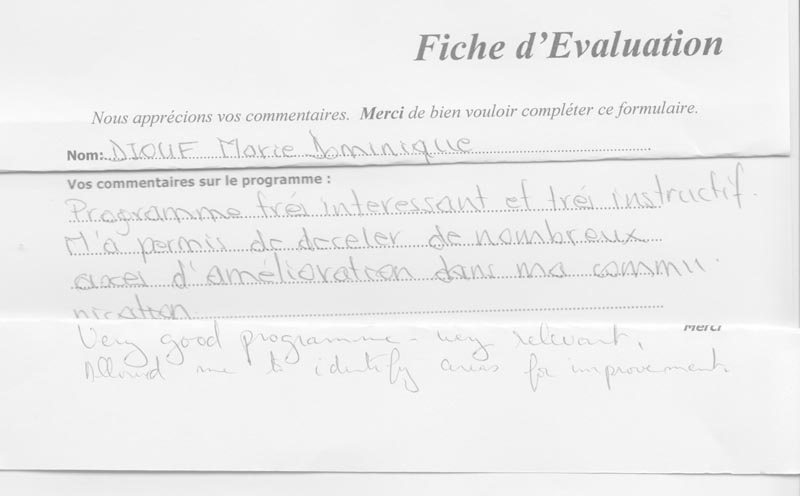 Fiche d'Evaluation
Nous apprécions vos commentaires. Merci de bien vouloir compléter ce formulaire.
Nom: DIOUF Marie Dominique
Vos commentaires sur le programme :
Programme très interessant et très instructif.
M'a permis de deceler de nombreux
axes d'amélioration dans ma commu
nication
Merci
Very good programme - very relevant,
Allowed me to identify areas for improvement